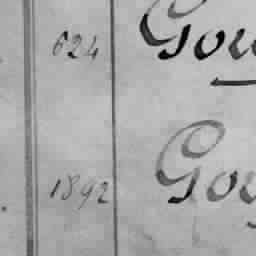 624 Gou
1892 Goy